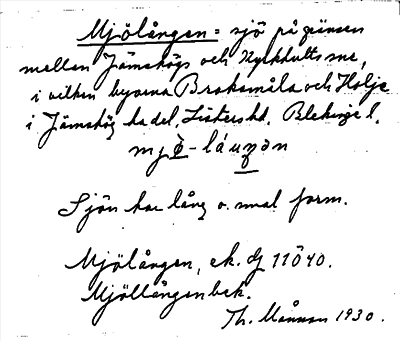 Mjölången = sjö på gränsen
mellan Jämshögs och Kyrkhults snr,
i vilken byarna Brokamåla och Holje
i Jämshög ha del. Listers hd. Blekinge l.
Sjön har lång o. smal form.
Mjölången, ek. 1840.
Mjöllångenbek.
Th. Månsson 1930.